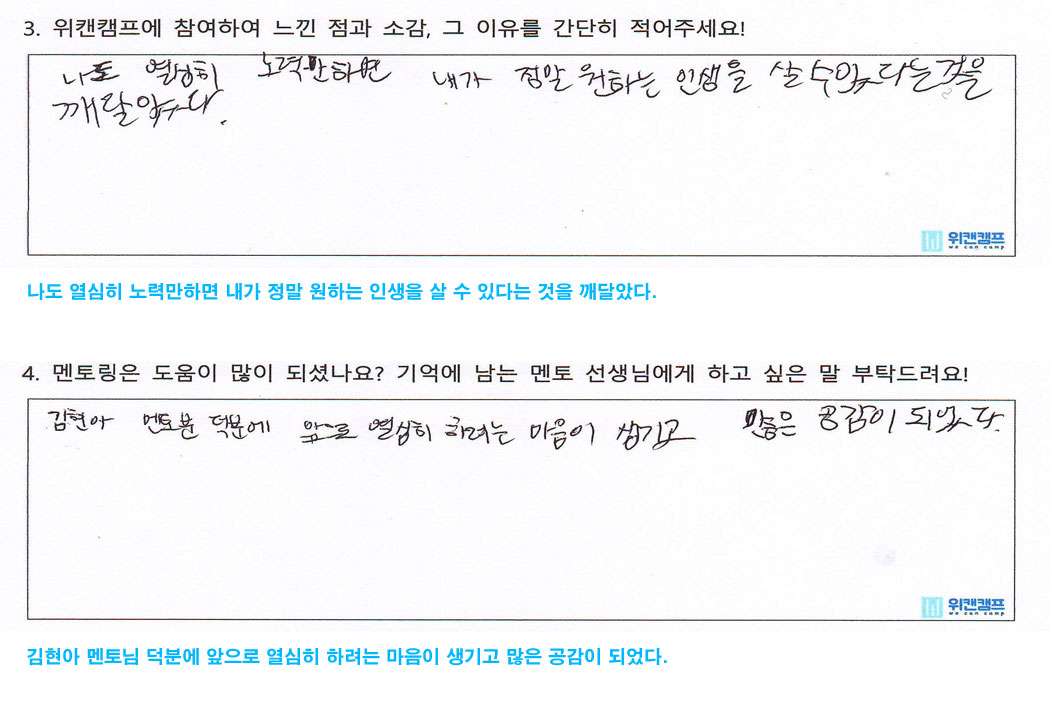 3. 위캔캠프에 참여하여 느낀 점과 소감, 그 이유를 간단히 적어주세요!
나도 열심히 노력만하면 내가 정말 원하는 인생을 살 수있다는것을
깨달았다.
위캔캠프
we can camp
나도 열심히 노력만하면 내가 정말 원하는 인생을 살 수 있다는 것을 깨달았다.
4. 멘토링은 도움이 많이 되셨나요? 기억에 남는 멘토 선생님에게 하고 싶은 말 부탁드려요!
김현아 멘토분 덕분에 앞으로 열심히 하려는 마음이 생기고 많은 공감이 되었다.
위캔캠프
we can camp
김현아 멘토님 덕분에 앞으로 열심히 하려는 마음이 생기고 많은 공감이 되었다.